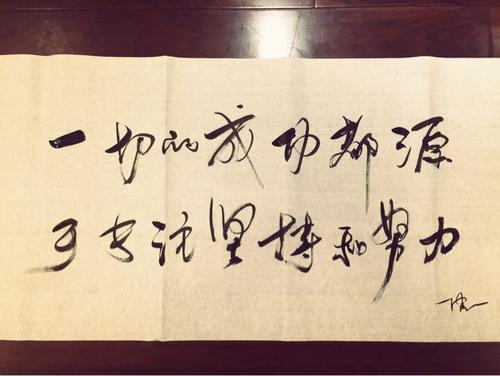 一切的成功都源
于专注坚持和努力